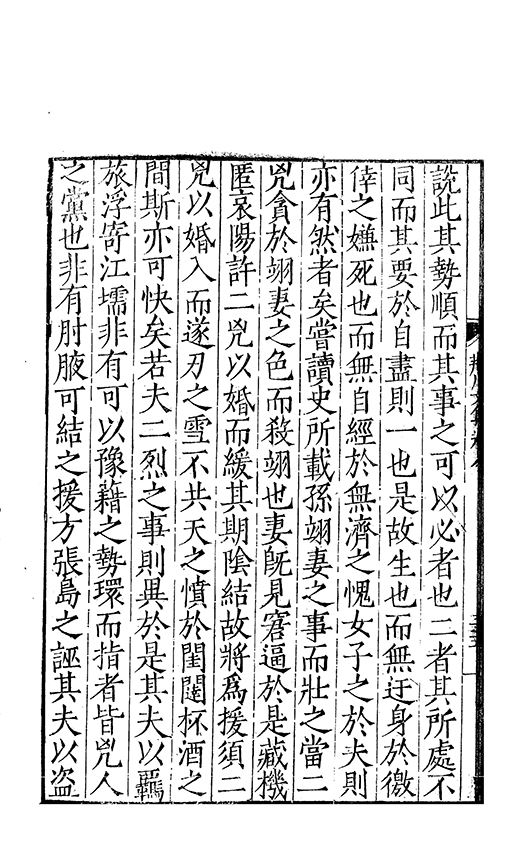 說此其勢順而其事之可以必者也二者其所處不
同而其要於自盡則一也是故生也而無迂身於徼
倖之嫌死也而無自經於無濟之愧女子之於夫則
亦有然者矣嘗讀史所載孫翊妻之事而壯之當二
兇貪於翊妻之色而殺翊也妻旣見窘逼於是藏機
匿哀陽許二兇以婚而緩其期陰結故將爲援須二
兇以婚入而遂刃之雪不共天之憤於閨闥杯酒之
間斯亦可快矣若夫二烈之事則異於是其夫以羈
旅浮寄江壖非有可以豫藉之勢環而指者皆兇人
之黨也非有肘腋可結之援方張島之誣其夫以盜